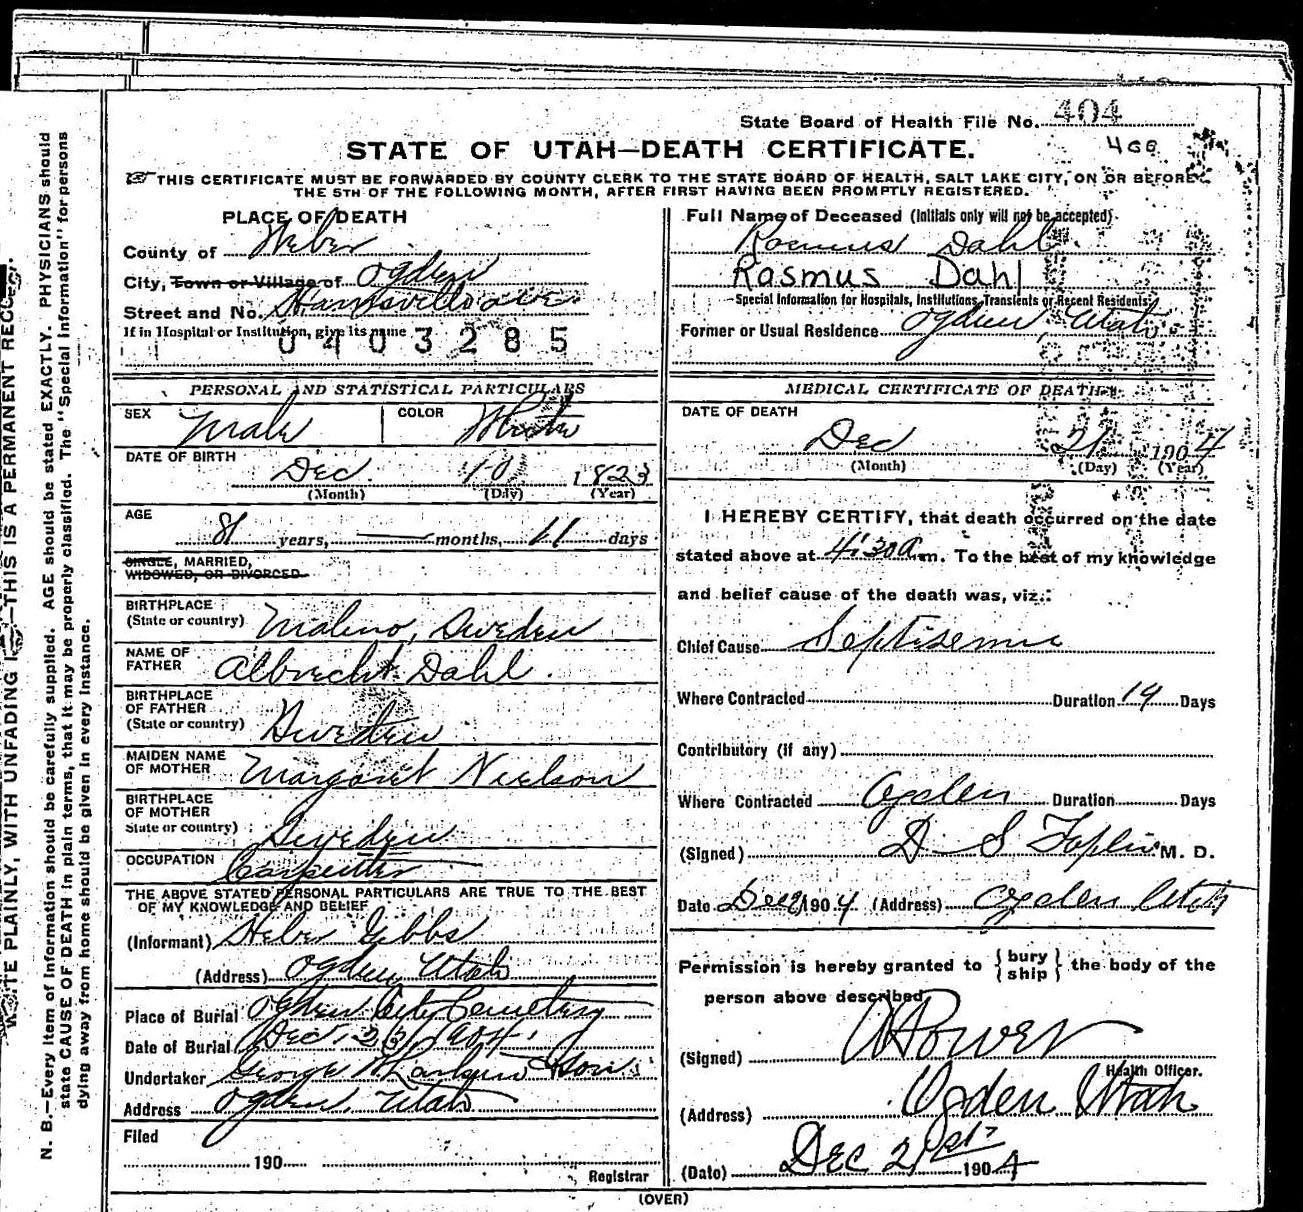 State Board of Health File No. 404
STATE OF UTAH—DEATH CERTIFICATE.
THIS CERTIFICATE MUST BE FORWARDED BY COUNTY CLERK TO THE STATE BOARD OF HEALTH, SALT LAKE CITY, ON OR BEFORE
THE 5TH OF THE FOLLOWING MONTH, AFTER FIRST HAVING BEEN PROMPTLY REGISTERED.
PLACE OF DEATH
County of Weber
City, Town or Village of Ogden
Street and No.
If in Hospital or Institution, give its name
0403285
PERSONAL AND STATISTICAL PARTICULARS
SEX Male COLOR White
DATE OF BIRTH
Dec. 10 1823
(Month) (Day) (Year)
AGE
81 years, — months, 11 days
SINGLE, MARRIED,
WIDOWED, OR DIVORCED
BIRTHPLACE
(State or country) Malmo, Sweden
NAME OF
FATHER Albrecht Dahl.
BIRTHPLACE
OF FATHER
(State or country) Sweden
MAIDEN NAME
OF MOTHER Margaret Neelson
BIRTHPLACE
OF MOTHER
State or country) Sweden
OCCUPATION Carpenter
THE ABOVE STATED PERSONAL PARTICULARS ARE TRUE TO THE BEST
OF MY KNOWLEDGE AND BELIEF
(Informant) Heber Gibbs
(Address) Ogden, Utah
Place of Burial Ogden City Cemetery
Date of Burial Dec. 23, 1904.
Undertaker George W Larkin & Sons
Address Ogden, Utah
Filed
190
Registrar
(OVER)
Full Name of Deceased (Initials only will not be accepted)
Rasmus Dahl
Rasmus Dahl
Special Information for Hospitals, Institutions, Transients or Recent Residents
Former or Usual Residence Ogden Utah
MEDICAL CERTIFICATE OF DEATH
DATE OF DEATH
Dec 21 1904
(Month) (Day) (Year)
I HEREBY CERTIFY, that death occurred on the date
stated above at 4:30 a.m. To the best of my knowledge
and belief cause of the death was, viz.:
Chief Cause Septisemia
Where Contracted Duration 19 Days
Contributory (if any)
Where Contracted Ogden Duration Days
(Signed) D S M. D.
Date Dec 21 1904 (Address) Ogden Utah
Permission is hereby granted to {bury
ship} the body of the
person above described
(Signed)
Health Officer.
(Address) Ogden Utah
(Date) Dec 21st 1904
N. B.—Every item of information should be carefully supplied. AGE should be stated EXACTLY. PHYSICIANS should
state CAUSE OF DEATH in plain terms, that it may be properly classified. The "Special Information" for persons
dying away from home should be given in every instance.
PLAINLY, WITH UNFADING THIS IS A PERMANENT